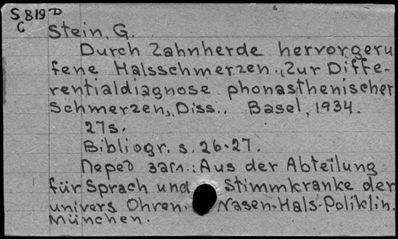 S 819 D
C
Stein, G.
Durch Zahnherde hervorgeru
fene Halsschmerzen. (Zur Diffe-
rentialdiagnose phonasthenischer
Schmerzen). Diss.. Basel, 1934.
27s.
Bibliogr. s. 26-27.
Перед загл.: Aus der Abteilung
für Sprach und Stimmkranke der
univers Ohren- Nasen-Hals-Poliklin.
München.